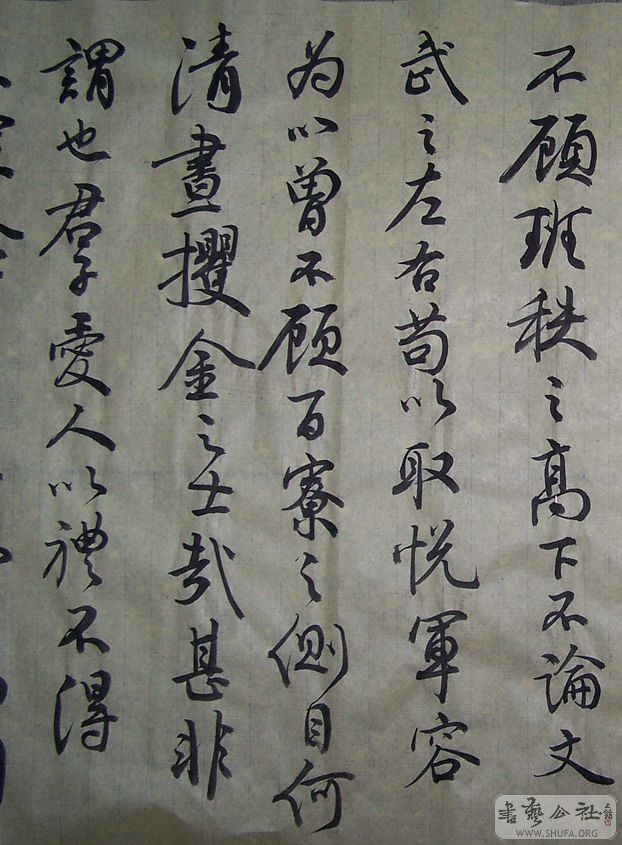 不顧班秩之高下不論文
武之左右苟以取悦軍容
为心曾不顧百寮之側目何
清晝攫金之士哉甚非
謂也君子愛人以禮不得
書藝公社
WWW.SHUFA.ORG